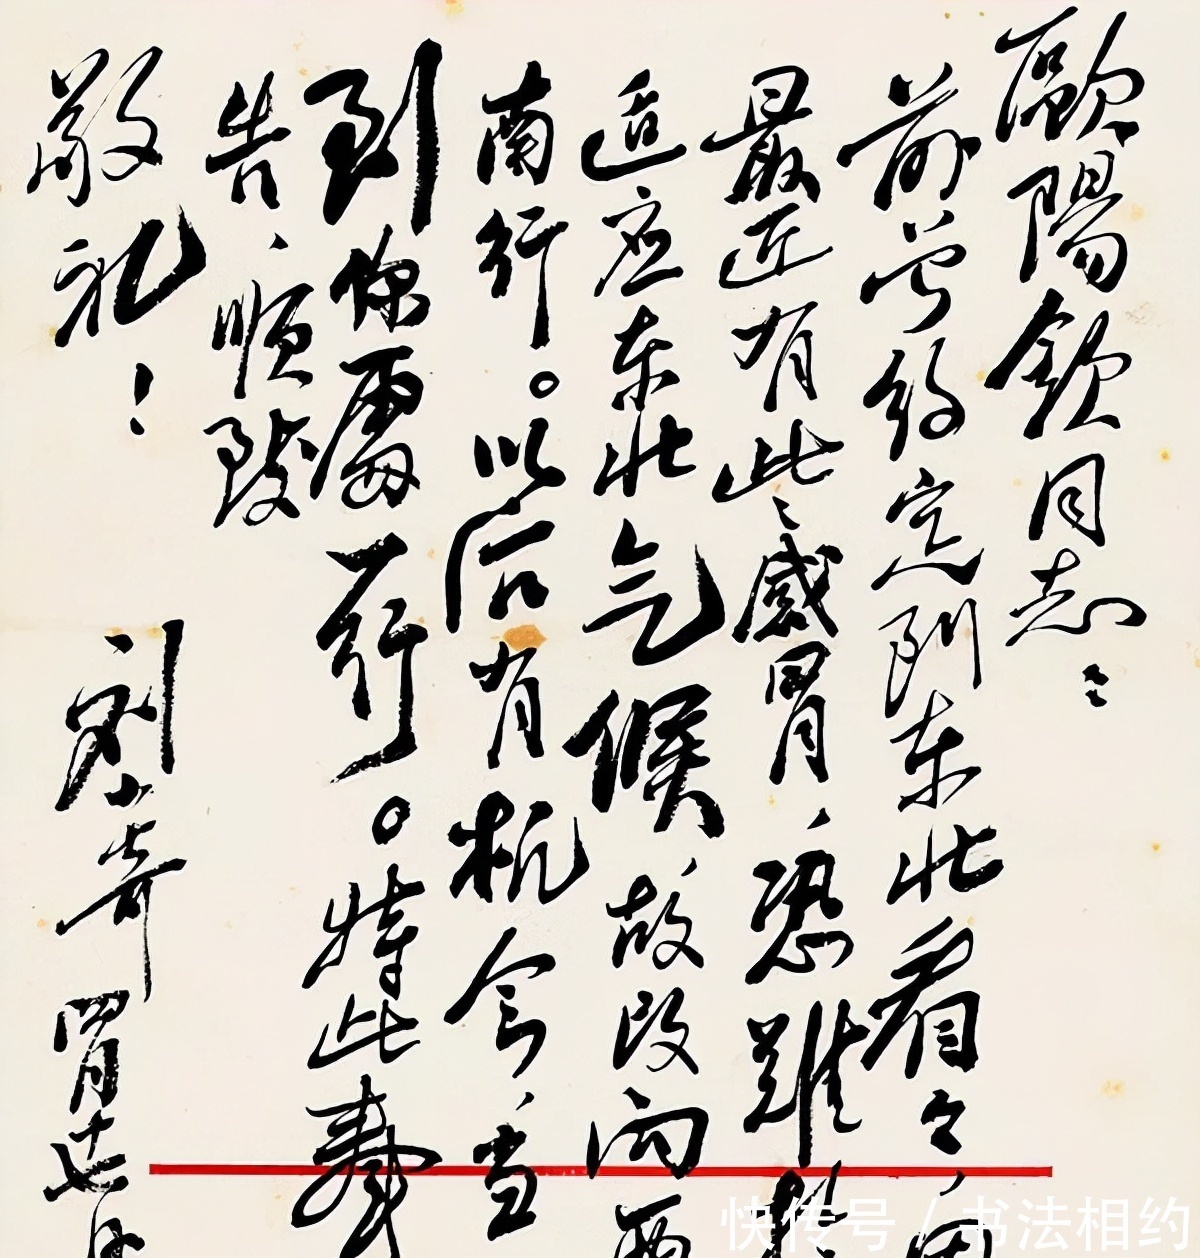 歐陽欽同志：
前曾約定到东北看看，因
最近有些感冒，恐難
适应东北气候故改向西
南行。以后有机会当
到你處一行。特此奉
告，順致
敬礼！
刘少奇 四月十七日
快传号 / 书法相约